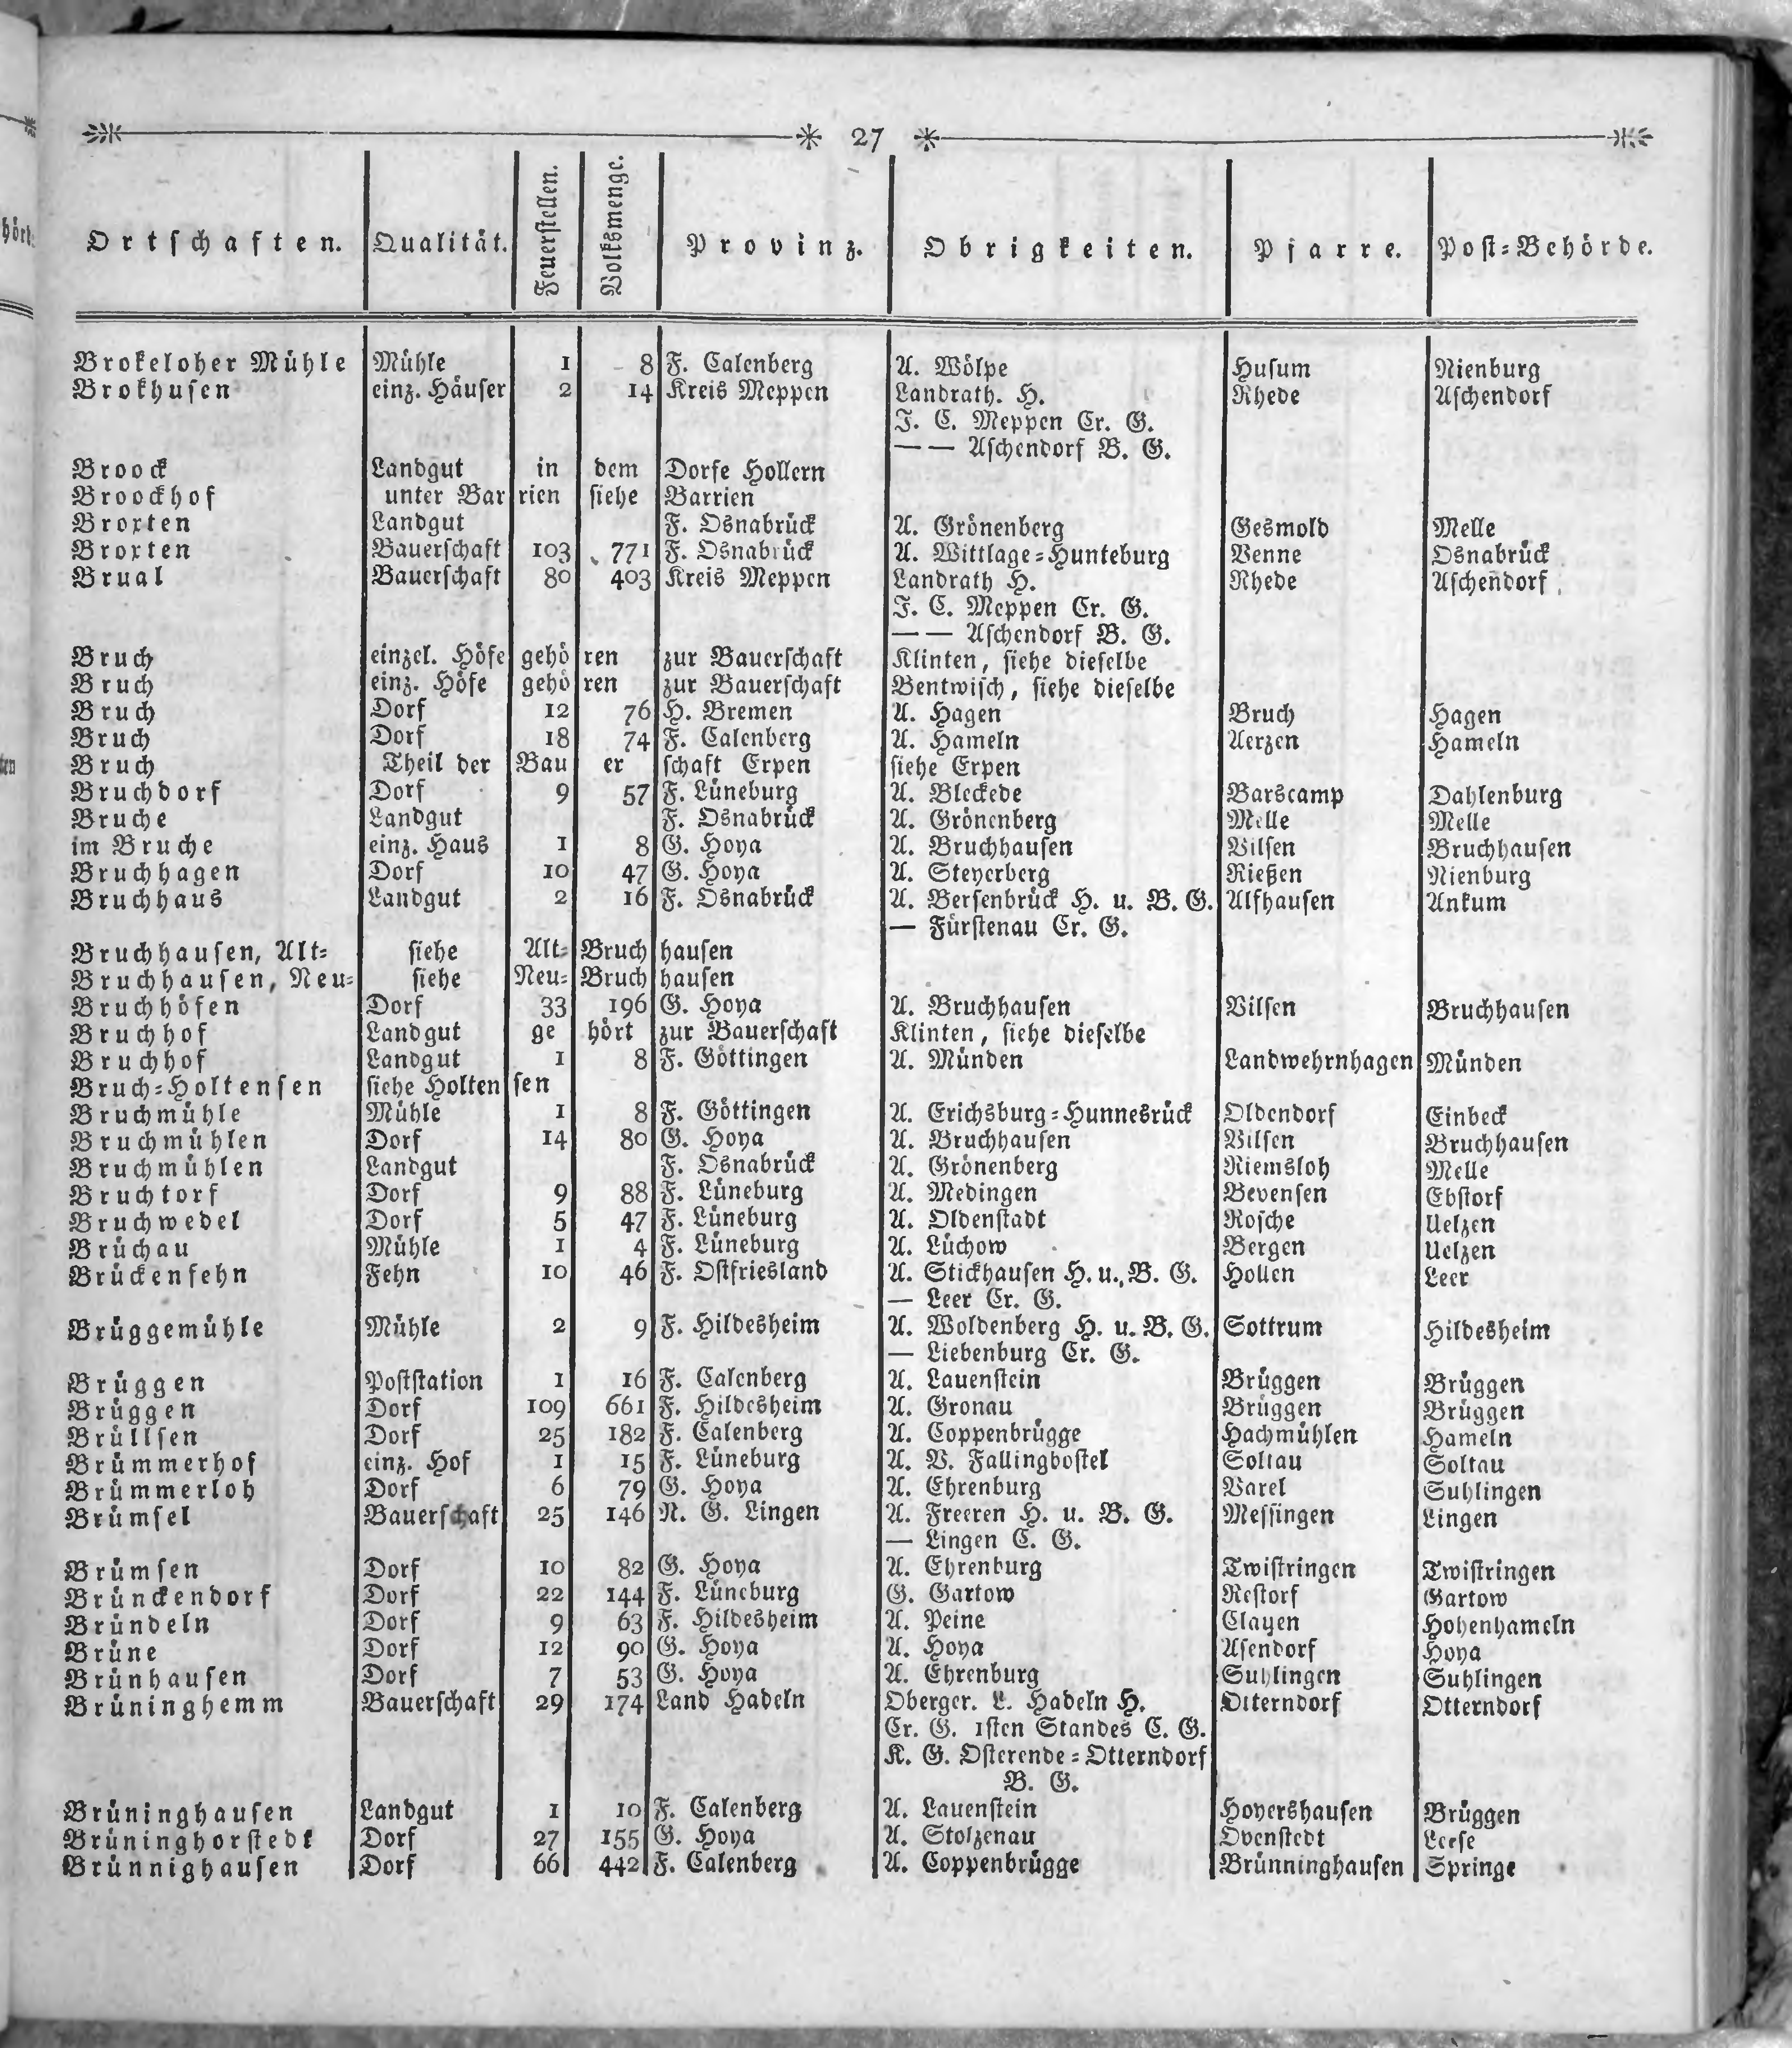 27
Ortschaften. Qualität. Feuerstellen. Volksmenge. Provinz. Obrigkeiten. Pfarre. Post=Behörde.
Brokeloher Mühle Mühle 1 8 F. Calenberg A. Wölpe Husum Nienburg
Brokhusen einz. Häuser 2 14 Kreis Meppen Landrath. H. Rhede Aschendorf
J. C. Meppen Cr. G.
—— Aschendorf B. G.
Broock Landgut in dem Dorfe Hollern
Broockhof unter Bar rien siehe Barrien
Broxten Landgut F. Osnabrück A. Grönenberg Gesmold Melle
Broxten Bauerschaft 103 771 F. Osnabrück A. Wittlage=Hunteburg Venne Osnabrück
Brual Bauerschaft 80 403 Kreis Meppen Landrath H. Rhede Aschendorf
J. C. Meppen Cr. G.
—— Aschendorf B. G.
Bruch einzel. Höfe gehö ren zur Bauerschaft Klinten, siehe dieselbe
Bruch einz. Höfe gehö ren zur Bauerschaft Bentwisch, siehe dieselbe
Bruch Dorf 12 76 H. Bremen A. Hagen Bruch Hagen
Bruch Dorf 18 74 F. Calenberg A. Hameln Aerzen Hameln
Bruch Theil der Bau er schaft Erpen siehe Erpen
Bruchdorf Dorf 9 57 F. Lüneburg A. Bleckede Barscamp Dahlenburg
Bruche Landgut F. Osnabrück A. Grönenberg Melle Melle
im Bruche einz. Haus 1 8 G. Hoya A. Bruchhausen Vilsen Bruchhausen
Bruchhagen Dorf 10 47 G. Hoya A. Steyerberg Rießen Nienburg
Bruchhaus Landgut 2 16 F. Osnabrück A. Bersenbrück H. u. B. G. Alfhausen Ankum
— Fürstenau Cr. G.
Bruchhausen, Alt= siehe Alt= Bruch hausen
Bruchhausen, Neu= siehe Neu= Bruch hausen
Bruchhöfen Dorf 33 196 G. Hoya A. Bruchhausen Vilsen Bruchhausen
Bruchhof Landgut ge hört zur Bauerschaft Klinten, siehe dieselbe
Bruchhof Landgut 1 8 F. Göttingen A. Münden Landwehrnhagen Münden
Bruch=Holtensen siehe Holten sen
Bruchmühle Mühle 1 8 F. Göttingen A. Erichsburg=Hunnesrück Oldendorf Einbeck
Bruchmühlen Dorf 14 80 G. Hoya A. Bruchhausen Vilsen Bruchhausen
Bruchmühlen Landgut F. Osnabrück A. Grönenberg Riemsloh Melle
Bruchtorf Dorf 9 88 F. Lüneburg A. Medingen Bevensen Ebstorf
Bruchwedel Dorf 5 47 F. Lüneburg A. Oldenstadt Rosche Uelzen
Brüchau Mühle 1 4 F. Lüneburg A. Lüchow Bergen Uelzen
Brückenfehn Fehn 10 46 F. Ostfriesland A. Stickhausen H. u. B. G. Hollen Leer
— Leer Cr. G.
Brüggemühle Mühle 2 9 F. Hildesheim A. Woldenberg H. u. B. G. Sottrum Hildesheim
— Liebenburg Cr. G.
Brüggen Poststation 1 16 F. Calenberg A. Lauenstein Brüggen Brüggen
Brüggen Dorf 109 661 F. Hildesheim A. Gronau Brüggen Brüggen
Brüllsen Dorf 25 182 F. Calenberg A. Coppenbrügge Hachmühlen Hameln
Brümmerhof einz. Hof 1 15 F. Lüneburg A. V. Fallingbostel Soltau Soltau
Brümmerloh Dorf 6 79 G. Hoya A. Ehrenburg Varel Suhlingen
Brümsel Bauerschaft 25 146 N. G. Lingen A. Freeren H. u. B. G. Messingen Lingen
— Lingen C. G.
Brümsen Dorf 10 82 G. Hoya A. Ehrenburg Twistringen Twistringen
Brünckendorf Dorf 22 144 F. Lüneburg G. Gartow Restorf Gartow
Bründeln Dorf 9 63 F. Hildesheim A. Peine Clauen Hohenhameln
Brüne Dorf 12 90 G. Hoya A. Hoya Asendorf Hoya
Brünhausen Dorf 7 53 G. Hoya A. Ehrenburg Suhlingen Suhlingen
Brüninghemm Bauerschaft 29 174 Land Hadeln Oberger. L. Hadeln H. Otterndorf Otterndorf
Cr. G. 1sten Standes C. G.
K. G. Osterende=Otterndorf
B. G.
Brüninghausen Landgut 1 10 F. Calenberg A. Lauenstein Hoyershausen Brüggen
Brüninghorstedt Dorf 27 155 G. Hoya A. Stolzenau Ovenstedt Leese
Brünnighausen Dorf 66 442 F. Calenberg A. Coppenbrügge Brünninghausen Springe